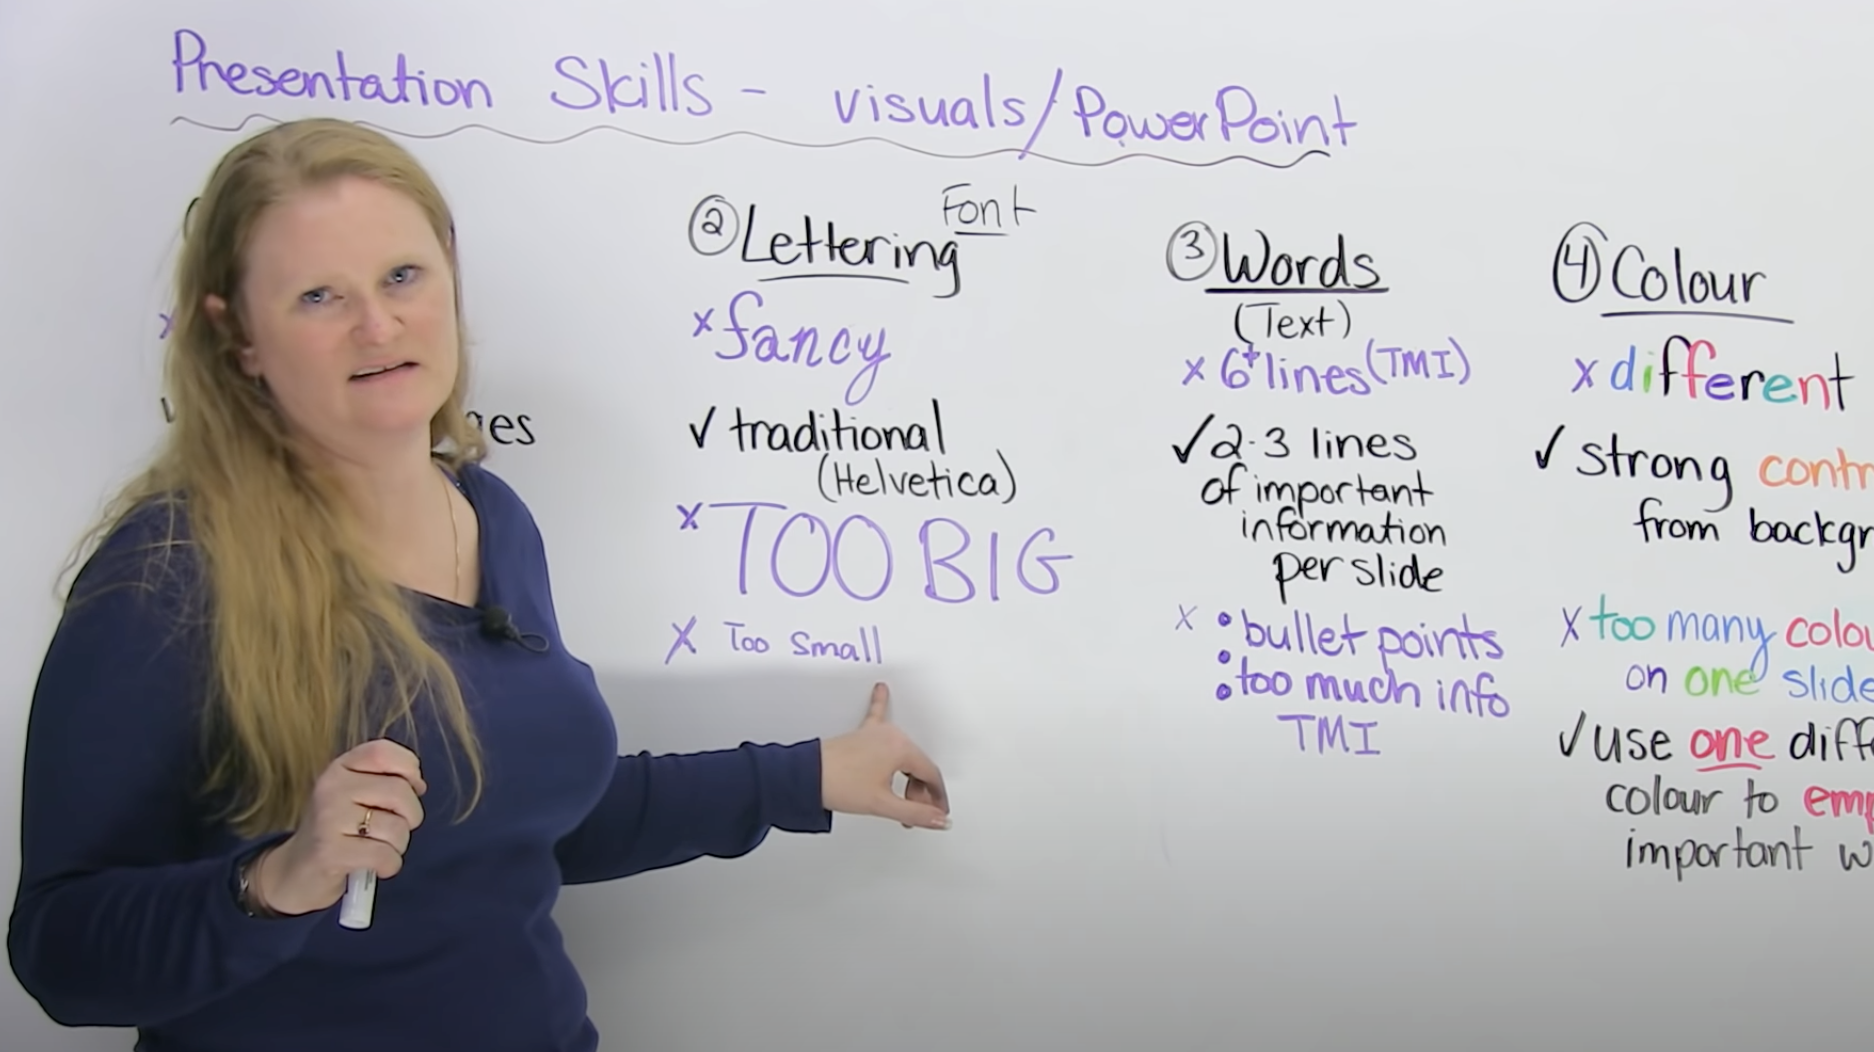 Presentation Skills - visuals/PowerPoint
② Lettering Font
x fancy
✓ traditional
(Helvetica)
x TOO BIG
x Too Small
③ Words
(Text)
x 6+ lines (TMI)
✓ 2-3 lines
of important
information
per slide
x • bullet points
• too much info
• TMI
④ Colour
x different
✓ strong
from
x too many
on one slide
✓ use one
colour to
important